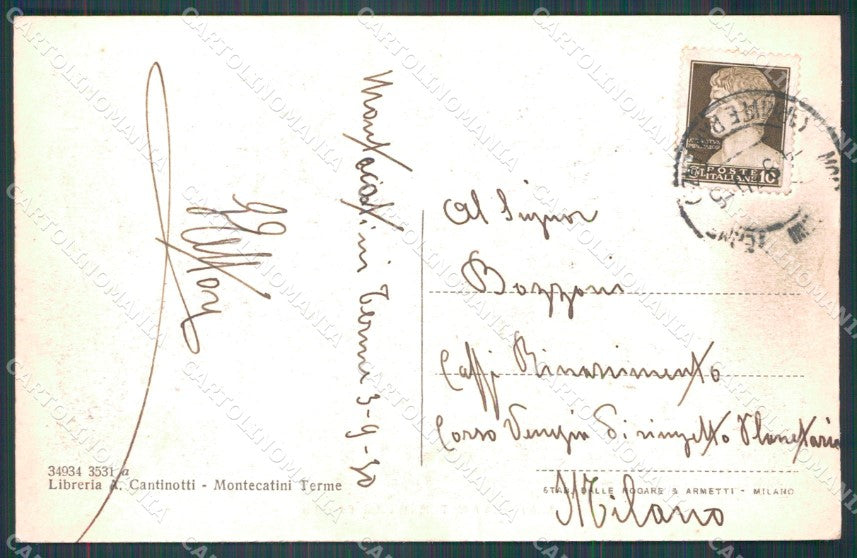 Montecatini Terme 3-9-30
Al Signor
Bozzoni
Caffi Rinascimento
Corso Venezia Dirinpetto Planetario
Milano
POSTE
ITALIANE 10
34934 3531 a
Libreria A. Cantinotti - Montecatini Terme
STAB. DALLE NOGARE & ARMETTI - MILANO
CARTOLINOMANIA